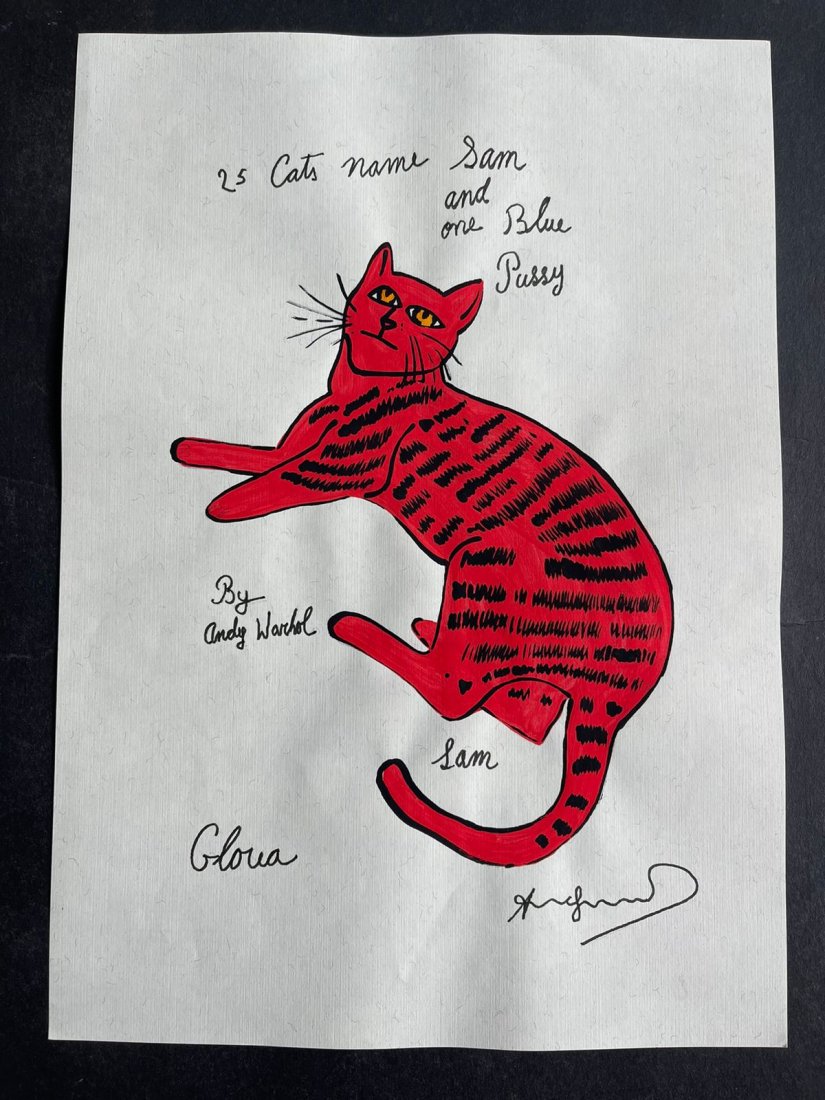 25 Cats name Sam
and
one Blue
Pussy
By
Andy Warhol
Sam
Gloria